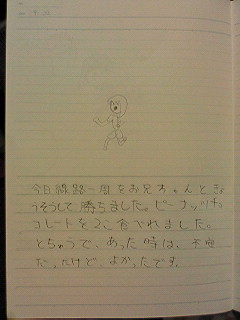 今日線路一周をお兄ちゃんときょ
うそうして勝ちました。ピーナッツチョ
コレートを2こ食べれました。
とちゅうで、あった時は、不安
だったけど、よかったです。